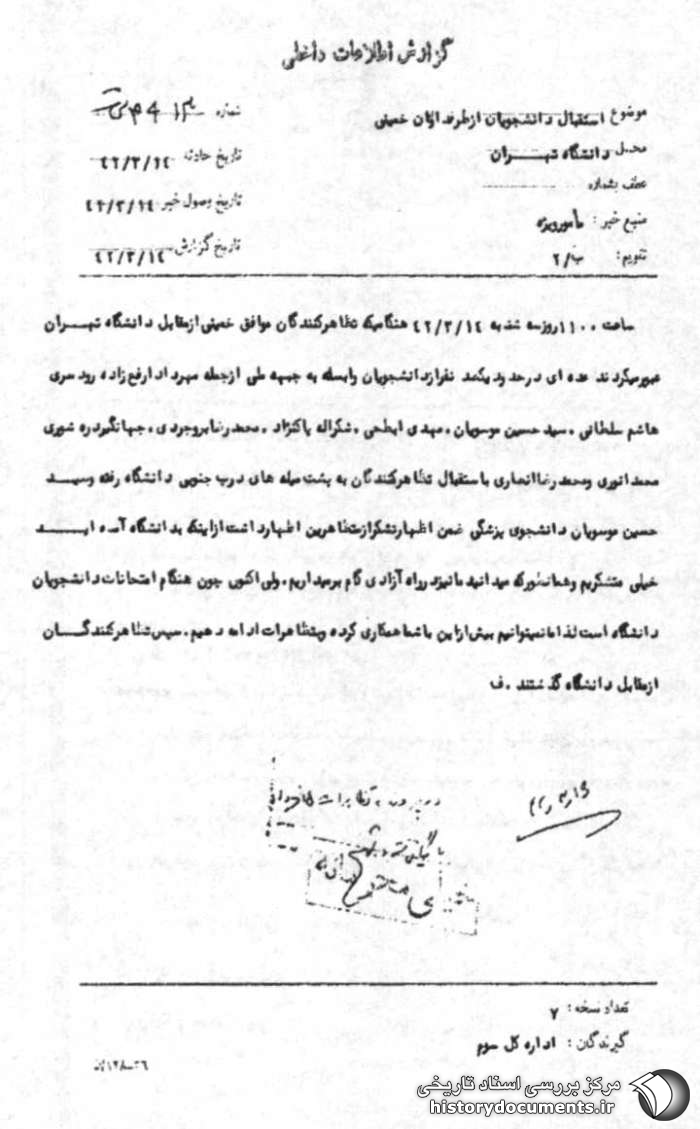 گزارش اطلاعات داخلی
موضوع استقبال دانشجویان ازطرفداران خمینی
محل دانشگاه تهـــران
عطف بشماره
منبع خبر: مأمورویژه
تقویم: ب/۲
شماره
تاریخ حادثه ۴۲/۳/۱۴
تاریخ وصول خبر ۴۲/۳/۱۴
تاریخ گزارش ۴۲/۳/۱۴
ساعت ۱۱۰۰ روزسه شنبه ۴۲/۳/۱۴ هنگامیکه تظاهرکنندگان موافق خمینی ازمقابل دانشگاه تهـــران
عبورمیکردند عده ای درحدودیکصد نفرازدانشجویان وابسته به جبهه ملی ازجمله مهرداد ارفع زاده رودسری
هاشم سلطانی، سید حسین موسویان، مهدی ابطحی، شکراله پاکنژاد، محمدرضا بروجردی، جهانگیردره شوری
محمدانوری ومحمدرضاانصاری باستقبال تظاهرکنندگان به پشت میله های درب جنوبی دانشگاه رفته وسیــد
حسین موسویان دانشجوی پزشگی ضمن اظهارتشکرازمتظاهرین اظهارداشت ازاینکه بدانشگاه آمده ایـــد
خیلی متشکریم وهمانطورکه میدانید مانیزدرراه آزادی گام برمیداریم، ولی اکنون چون هنگام امتحانات دانشجویان
دانشگاه است لذا مانمیتوانیم بیش ازاین باشما همکاری کرده وبتظاهرات ادامه دهیم. سپس تظاهرکنندگــان
ازمقابل دانشگاه گذشتند. ف
تعداد نسخه: ۷
گیرندگان: اداره کل سوم
مرکز بررسی اسناد تاریخی
historydocuments.ir